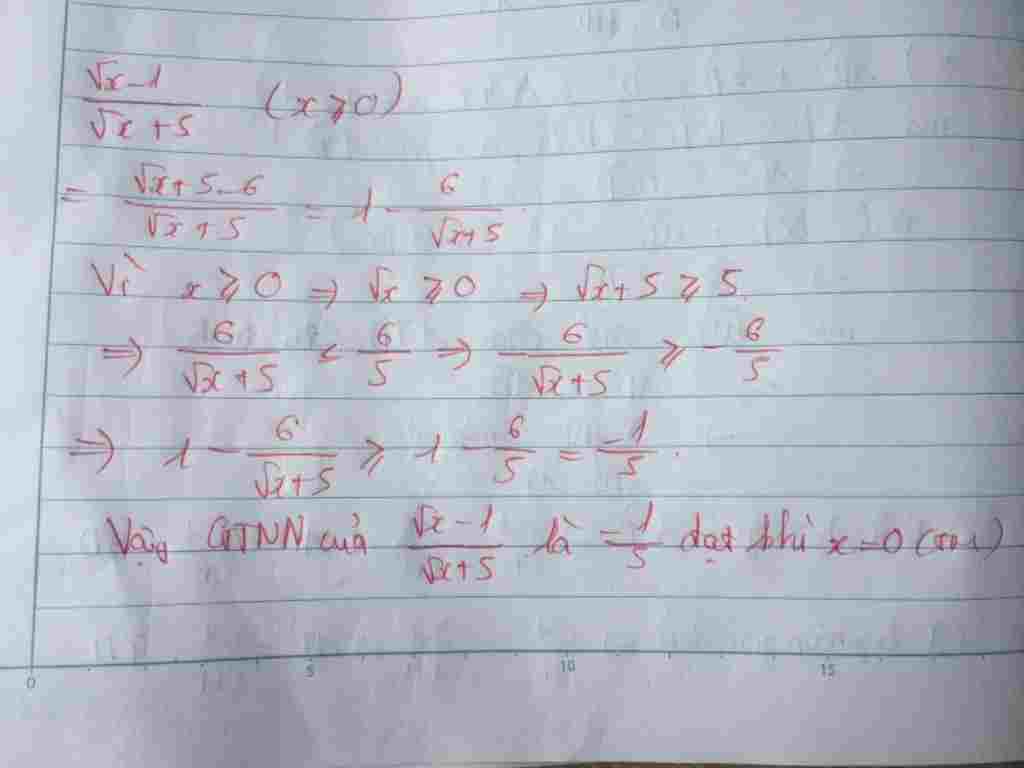 √x - 1 / √x + 5 (x ≥ 0)
= √x + 5 - 6 / √x + 5 = 1 - 6 / √x + 5
Vì x ≥ 0 => √x ≥ 0 => √x + 5 ≥ 5
=> 6 / √x + 5 < 6 / 5 => 6 / √x + 5 ≥ - 6 / 5
=> 1 - 6 / √x + 5 ≥ 1 - 6 / 5 = -1 / 5.
Vậy GTNN của √x - 1 / √x + 5 là -1 / 5 đạt khi x = 0
0 5 10 15